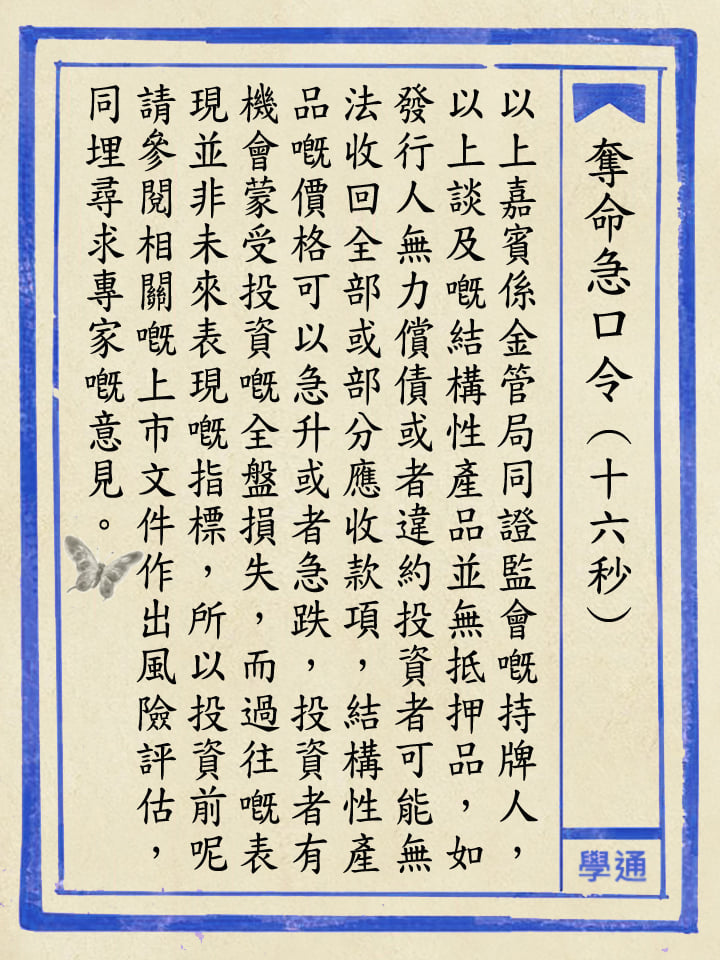 奪命急口令（十六秒）
以上嘉賓係金管局同證監會嘅持牌人，
以上談及嘅結構性產品並無抵押品，如
發行人無力償債或者違約投資者可能無
法收回全部或部分應收款項，結構性產
品嘅價格可以急升或者急跌，投資者有
機會蒙受投資嘅全盤損失，而過往嘅表
現並非未來表現嘅指標，所以投資前呢
請參閱相關嘅上市文件作出風險評估，
同埋尋求專家嘅意見。
學通